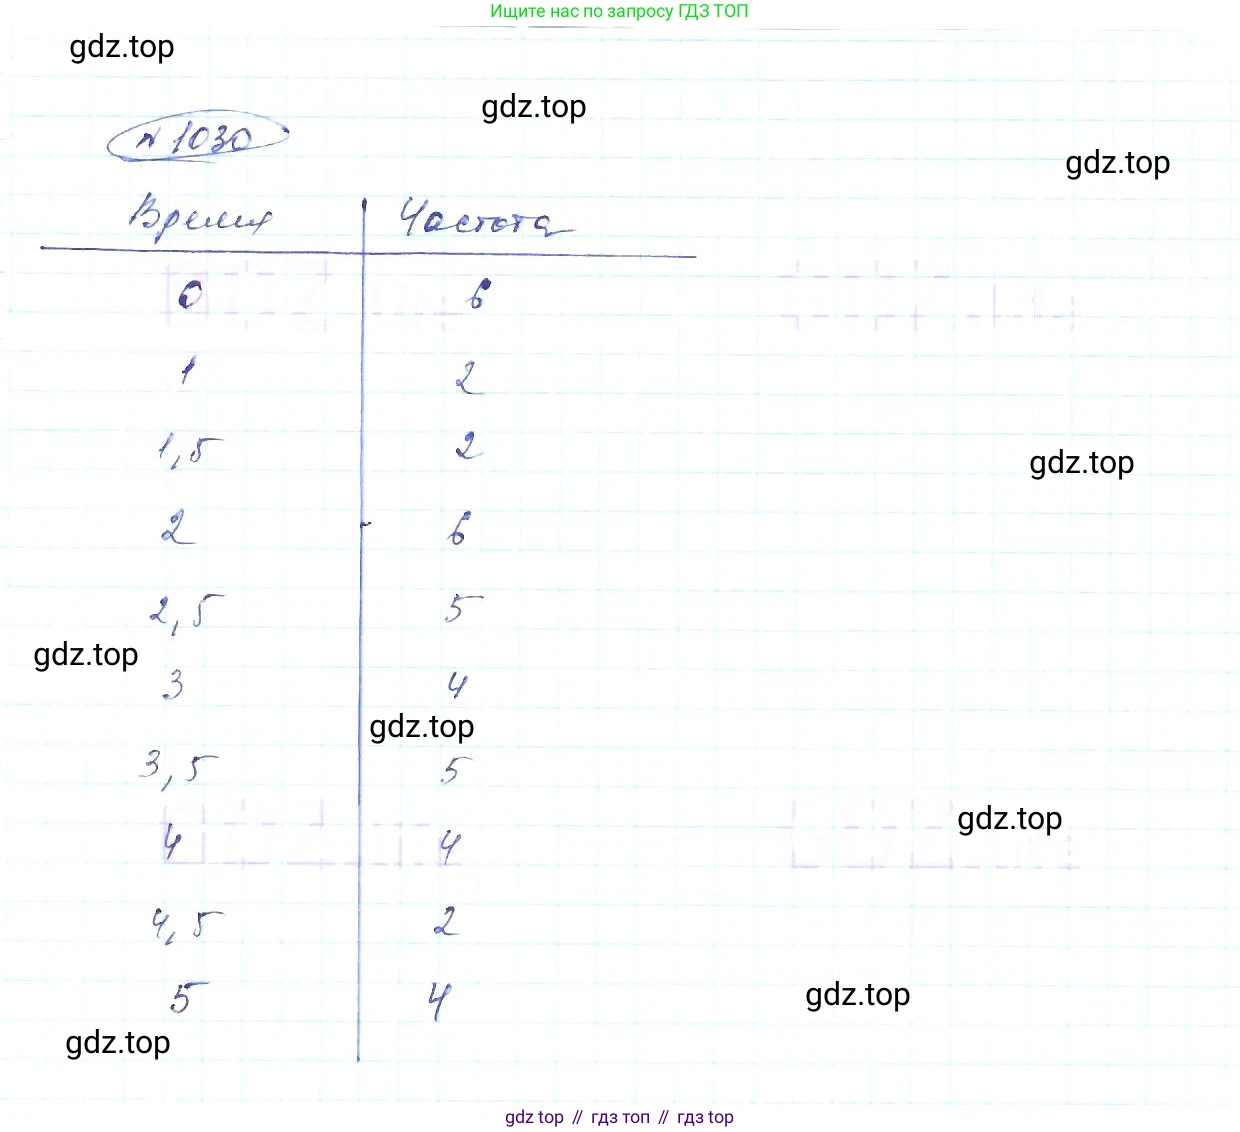 Ищите нас по запросу ГДЗ ТОП
gdz.top
gdz.top
№ 1030
gdz.top
Время Частота
0 6
1 2
1,5 2
gdz.top
2 6
2,5 5
gdz.top
3 4
gdz.top
3,5 5
gdz.top
4 4
4,5 2
5 4
gdz.top
gdz.top
gdz top // гдз топ // гдз top